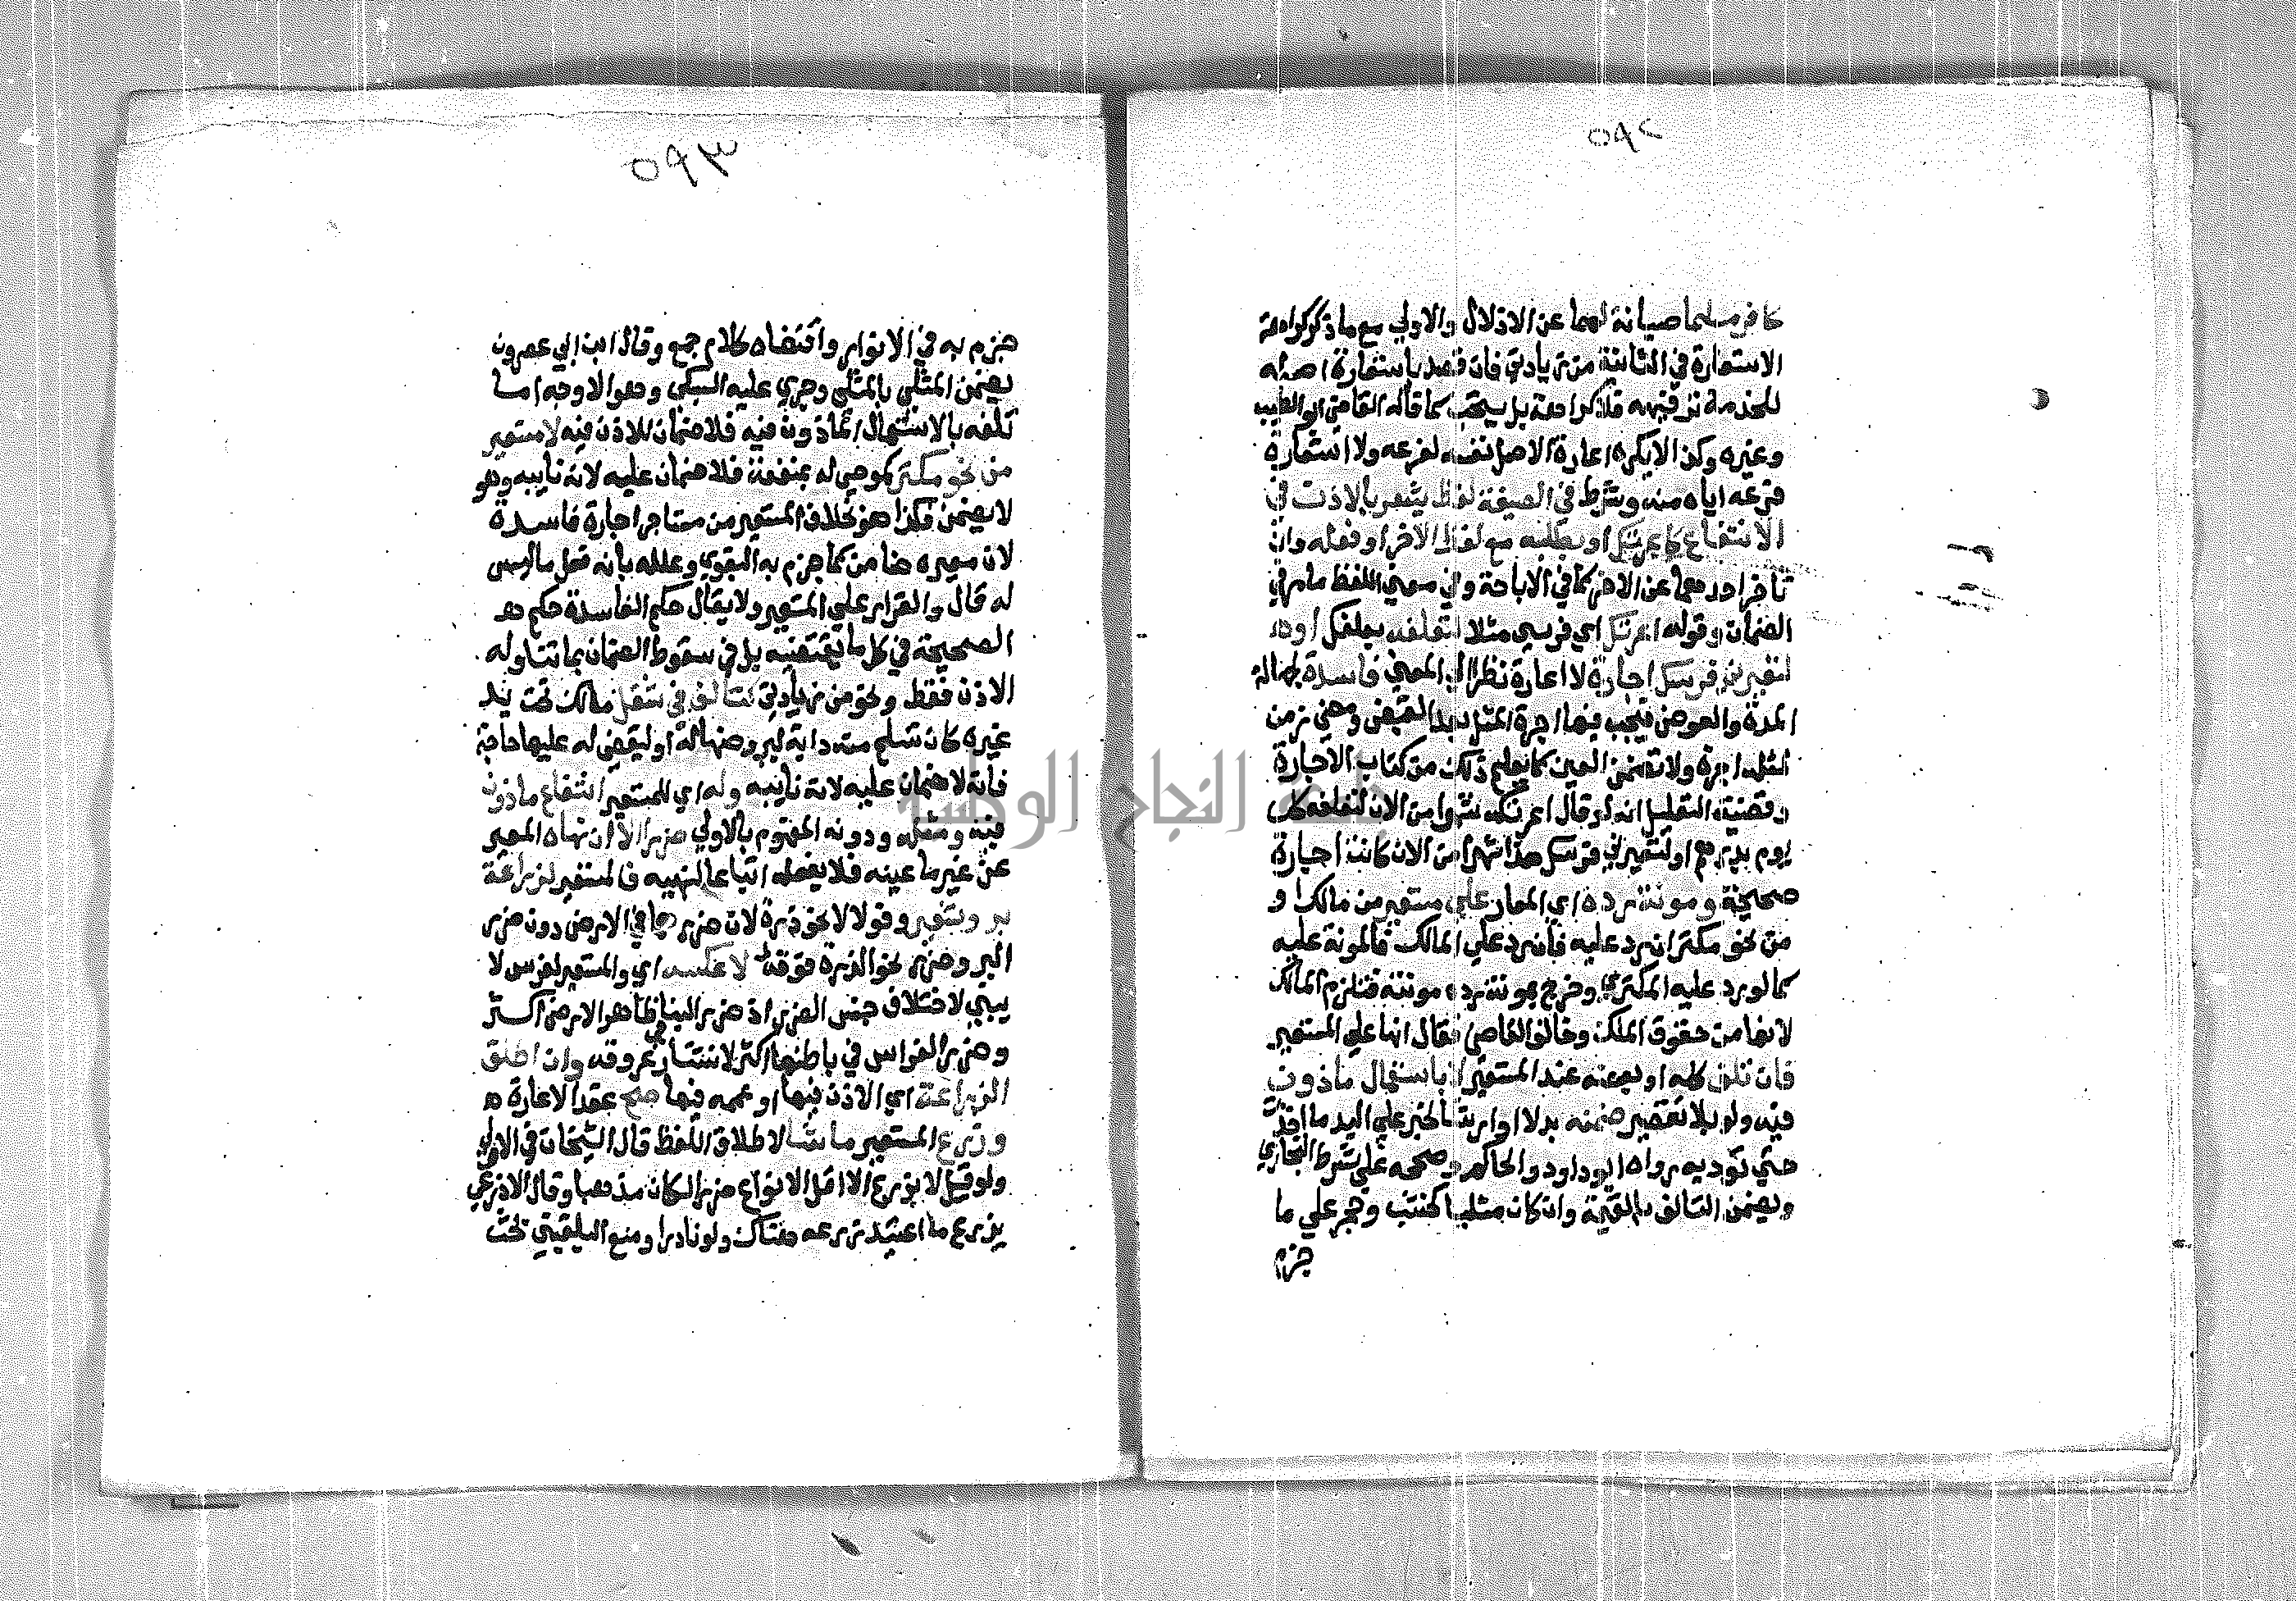 ٥٩٢
كافر مسلما صيانة لهما عن الاذلال والاولي مع ما ذكر كراهة
الاستعارة في الثانية من زيادتي فان قصد باستعارة اصله
للخدمة ترفيهه فلا كراهة بل يستحب كما قاله القاضي ابو الطيب
وغيره وكذا لا يكره اعارة الاصل نفسه لفرعه ولا استعارة
فرعه اياه منه وشرط في الصيغة لفظ يشعر بالاذن في
الانتفاع كاعرتك او بطلبه مع لفظ الاخر او فعله وان
تاخر احدهما عن الاخر كما في الاباحة وفي معني اللفظ ما مر في
الضمان وقوله اعرتك اي فرسي مثلا لتعلفه بعلفك او
لتعيرني فرسك اجارة لا اعارة نظرا الي المعني فاسدة لجهالة
المدة والعوض فيجب فيها اجرة المثل بعد القبض ومضي زمن
لمثله اجرة ولا تضمن العين كما يعلم ذلك من كتاب الاجارة
وقضية التعليل انه لو قال اعرتكه شهرا من الان لتعلفه كل
يوم بدرهم او لتعيرني فرسك هذا شهرا من الان كانت اجارة
صحيحة ومونة رده اي المعار علي مستعير من مالك او
من نحو مكتر ان رد عليه فان رد علي المالك فالمونة عليه
كما لو رد عليه المكتري وخرج بمونة رده مونته فتلزم المالك
لانها من حقوق الملك وخالف القاضي فقال انها علي المستعير
فان تلف كله او بعضه عند المستعير لا باستعمال ماذون
فيه ولو بلا تقصير ضمنه بدلا او ارشا لخبر علي اليد ما اخذت
حتي توديه رواه ابو داود والحاكم وصححه علي شرط البخاري
ويضمن التالف بالقيمة وان كان مثليا كخشب وحجر علي ما
جزم
٥٩٣
جزم به في الانوار واقتضاه كلام جمع وقال ابن ابي عصرون
يضمن المثلي بالمثلي وجري عليه السبكي وهو الاوجه اما
تلفه بالاستعمال الماذون فيه فلا ضمان للاذن فيه لا مستعير
من نحو مكتر كموصي له بمنفعة فلا ضمان عليه لانه نايبه وهو
لا يضمن فكذا هو بخلاف المستعير من مستاجر اجارة فاسدة
لان معيره ضامن كما جزم به البغوي وعلله بانه فعل ما ليس
له قال والقرار علي المستعير ولا يقال حكم الفاسدة حكم
الصحيحة في كل ما تقتضيه بل في سقوط الضمان بما تناوله
الاذن فقط ونحو من زيادتي كتالف في شغل مالك تحت يد
غيره كان تسلم منه دابة ليروضها له او ليقضي له عليها حاجة
فانه لا ضمان عليه لانه نايبه وله اي للمستعير انتفاع ماذون
فيه ومثله ودونه المفهوم بالاولي ضررا الا ان نهاه المعير
عن غير ما عينه فلا يفعله اتباعا لنهيه فالمستعير لزراعة
بر وشعير وفولا لا نحو ذرة لان ضررها في الارض دون ضرر
البر وضرر نحو الذرة فوقه لا عكسه اي والمستعير لغرس لا
يبني لاختلاف جنس الضرر اذ ضرر البنا في ظاهر الارض اكثر
وضرر الغراس في باطنها اكثر لانتشار عروقه وان اطلق
الزراعة اي الاذن فيها او عممه فيها صح عقد الاعارة
وزرع المستعير ما شا لاطلاق اللفظ قال الشيخان في الاولي
ولو قيل لا يزرع الا اقل الانواع ضررا لكان مذهبا وقال الاذرعي
يزرع ما اعتيد زرعه هناك ولو نادرا ومنع البلقيني بحث
جامعة النجاح الوطنية